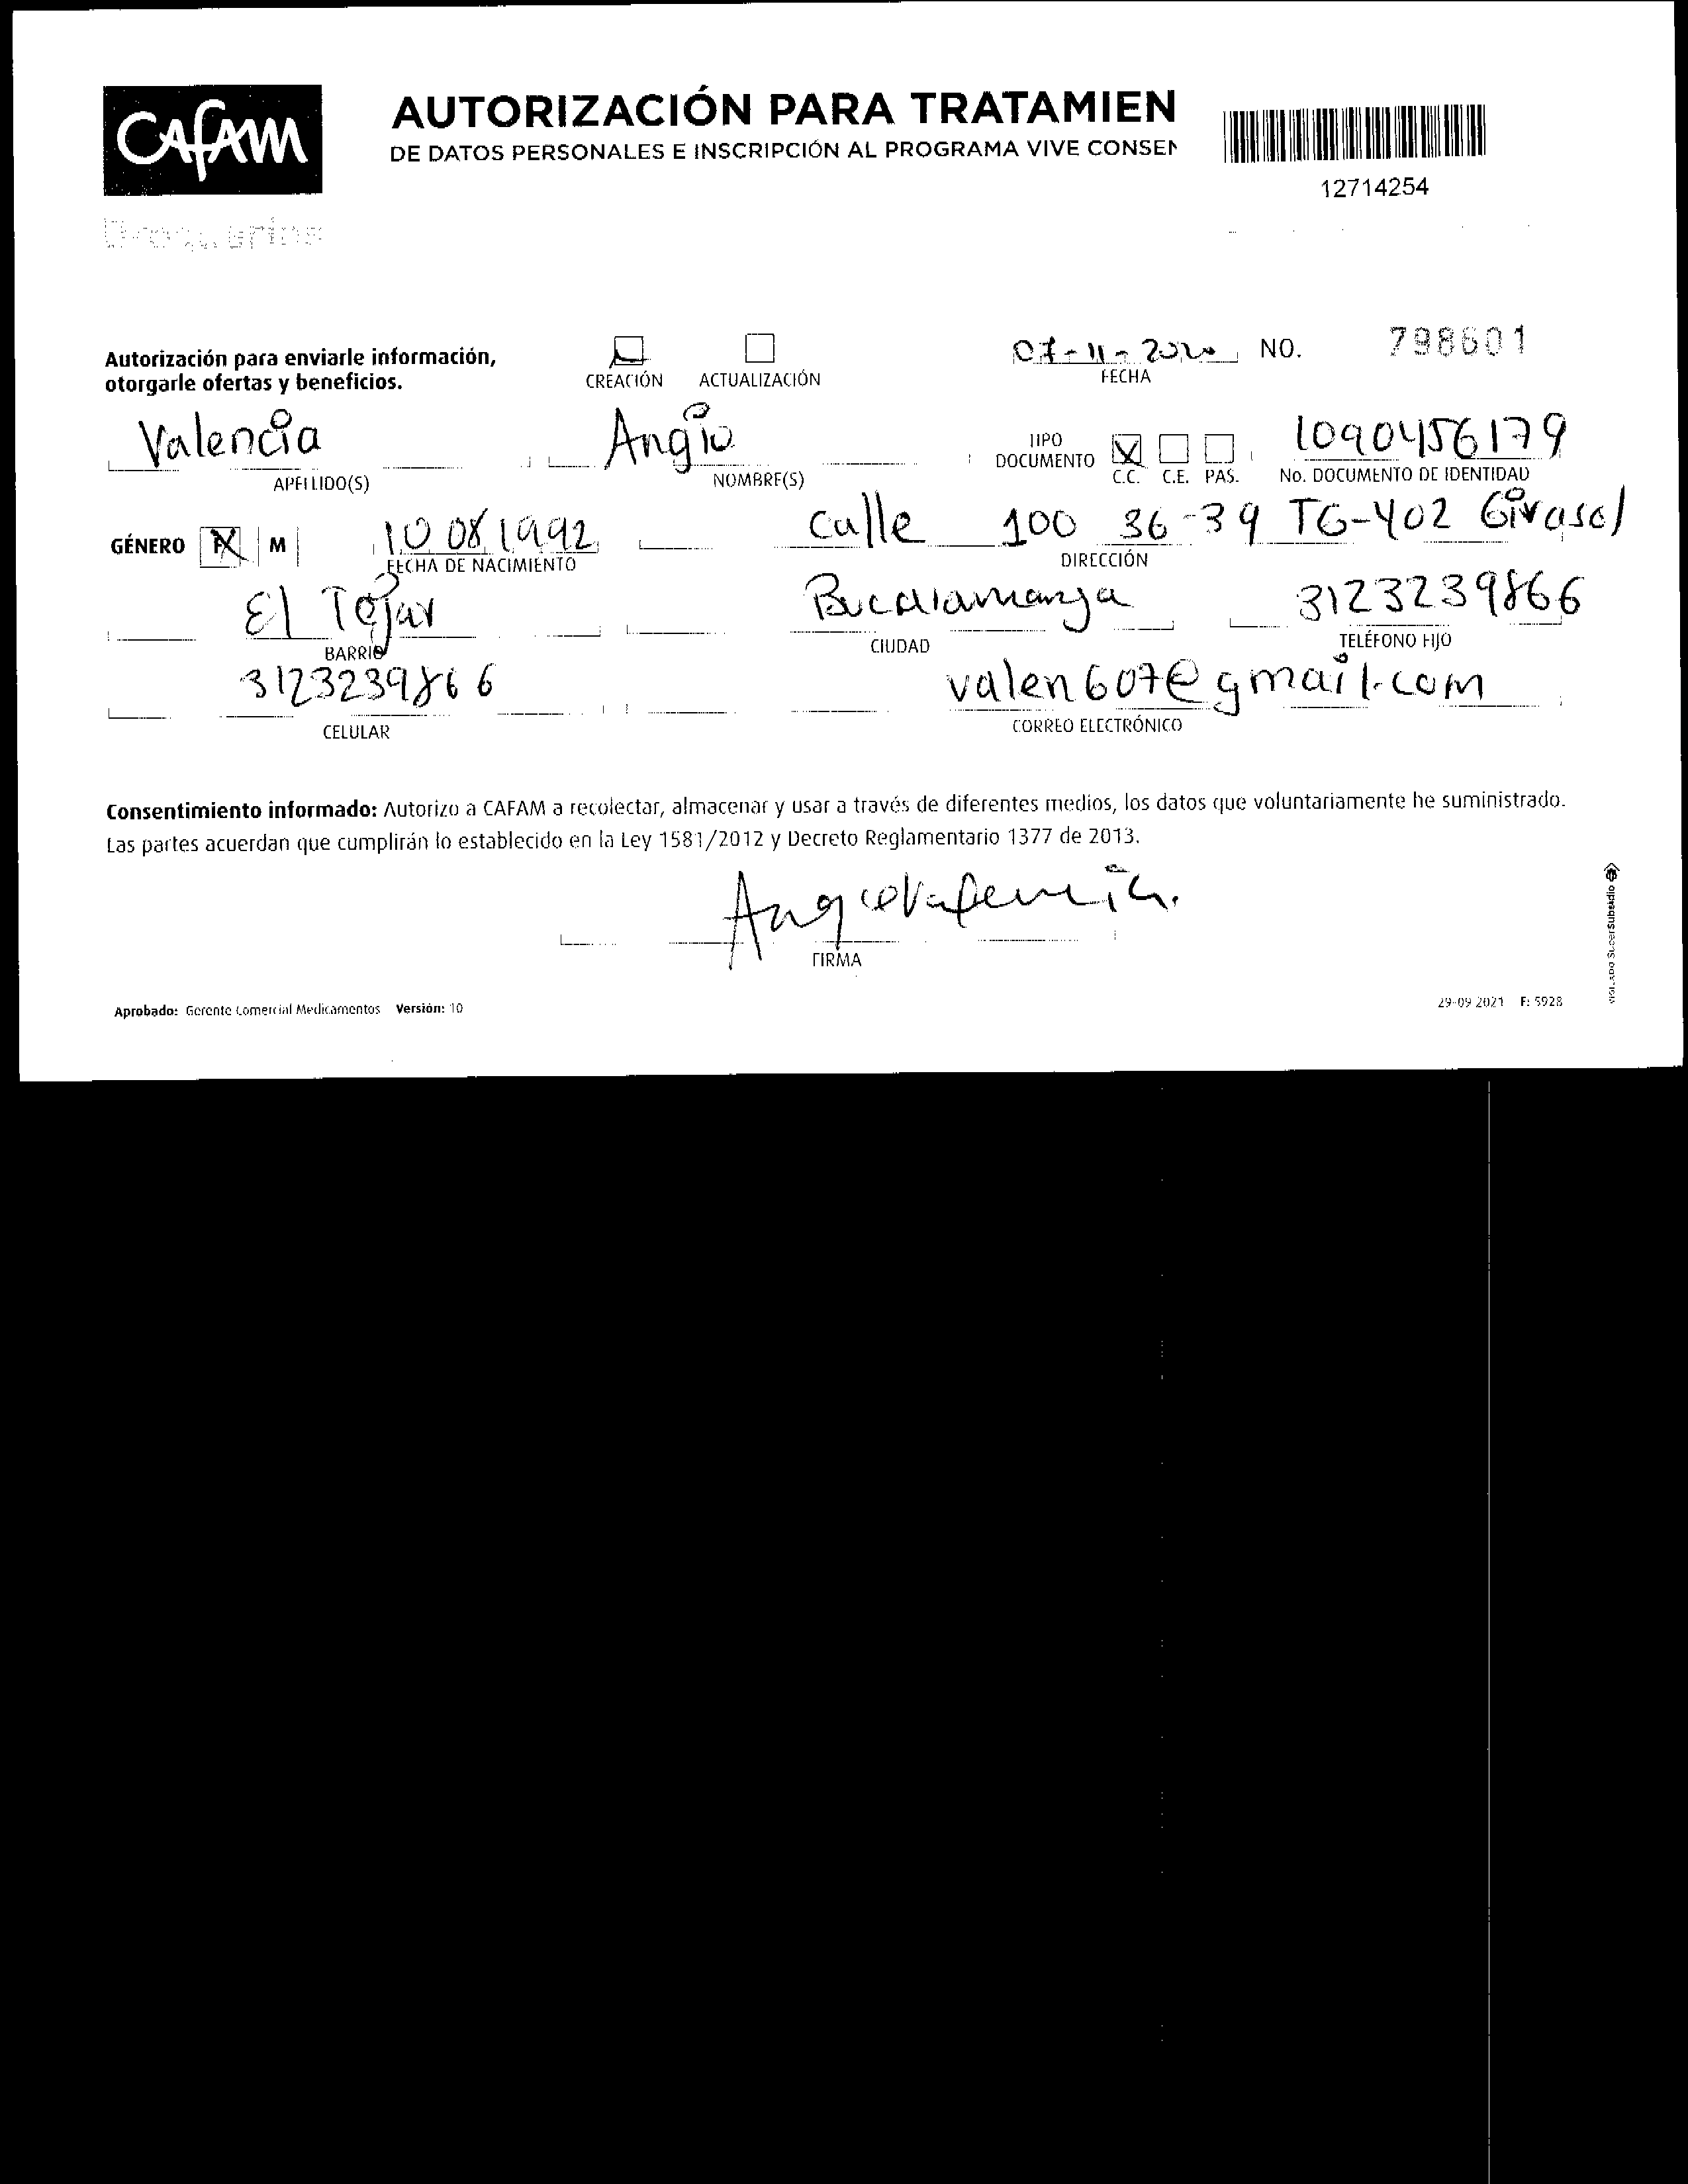 CAFAM
AUTORIZACIÓN PARA TRATAMIEN
DE DATOS PERSONALES E INSCRIPCIÓN AL PROGRAMA VIVE CONSEN
12714254
Droguerías
Autorización para enviarle información,
otorgarle ofertas y beneficios.
CREACIÓN ACTUALIZACIÓN
07-11-2020 NO. 798601
FECHA
Valencia Angie TIPO DOCUMENTO C.C. C.E. PAS. 1090456179
APELLIDO(S) NOMBRE(S) No. DOCUMENTO DE IDENTIDAD
GÉNERO F M 10 08 1992 Calle 100 36-39 T6-402 Girasol
FECHA DE NACIMIENTO DIRECCIÓN
El Tejar Bucaramanga 3123239866
BARRIO CIUDAD TELÉFONO FIJO
3123239866 valen607@gmail.com
CELULAR CORREO ELECTRÓNICO
Consentimiento informado: Autorizo a CAFAM a recolectar, almacenar y usar a través de diferentes medios, los datos que voluntariamente he suministrado.
Las partes acuerdan que cumplirán lo establecido en la Ley 1581/2012 y Decreto Reglamentario 1377 de 2013.
Angie Valencia.
FIRMA
Aprobado: Gerente Comercial Medicamentos Versión: 10
29-09 2021 F: 5928
VIGILADO SuperSubsidio